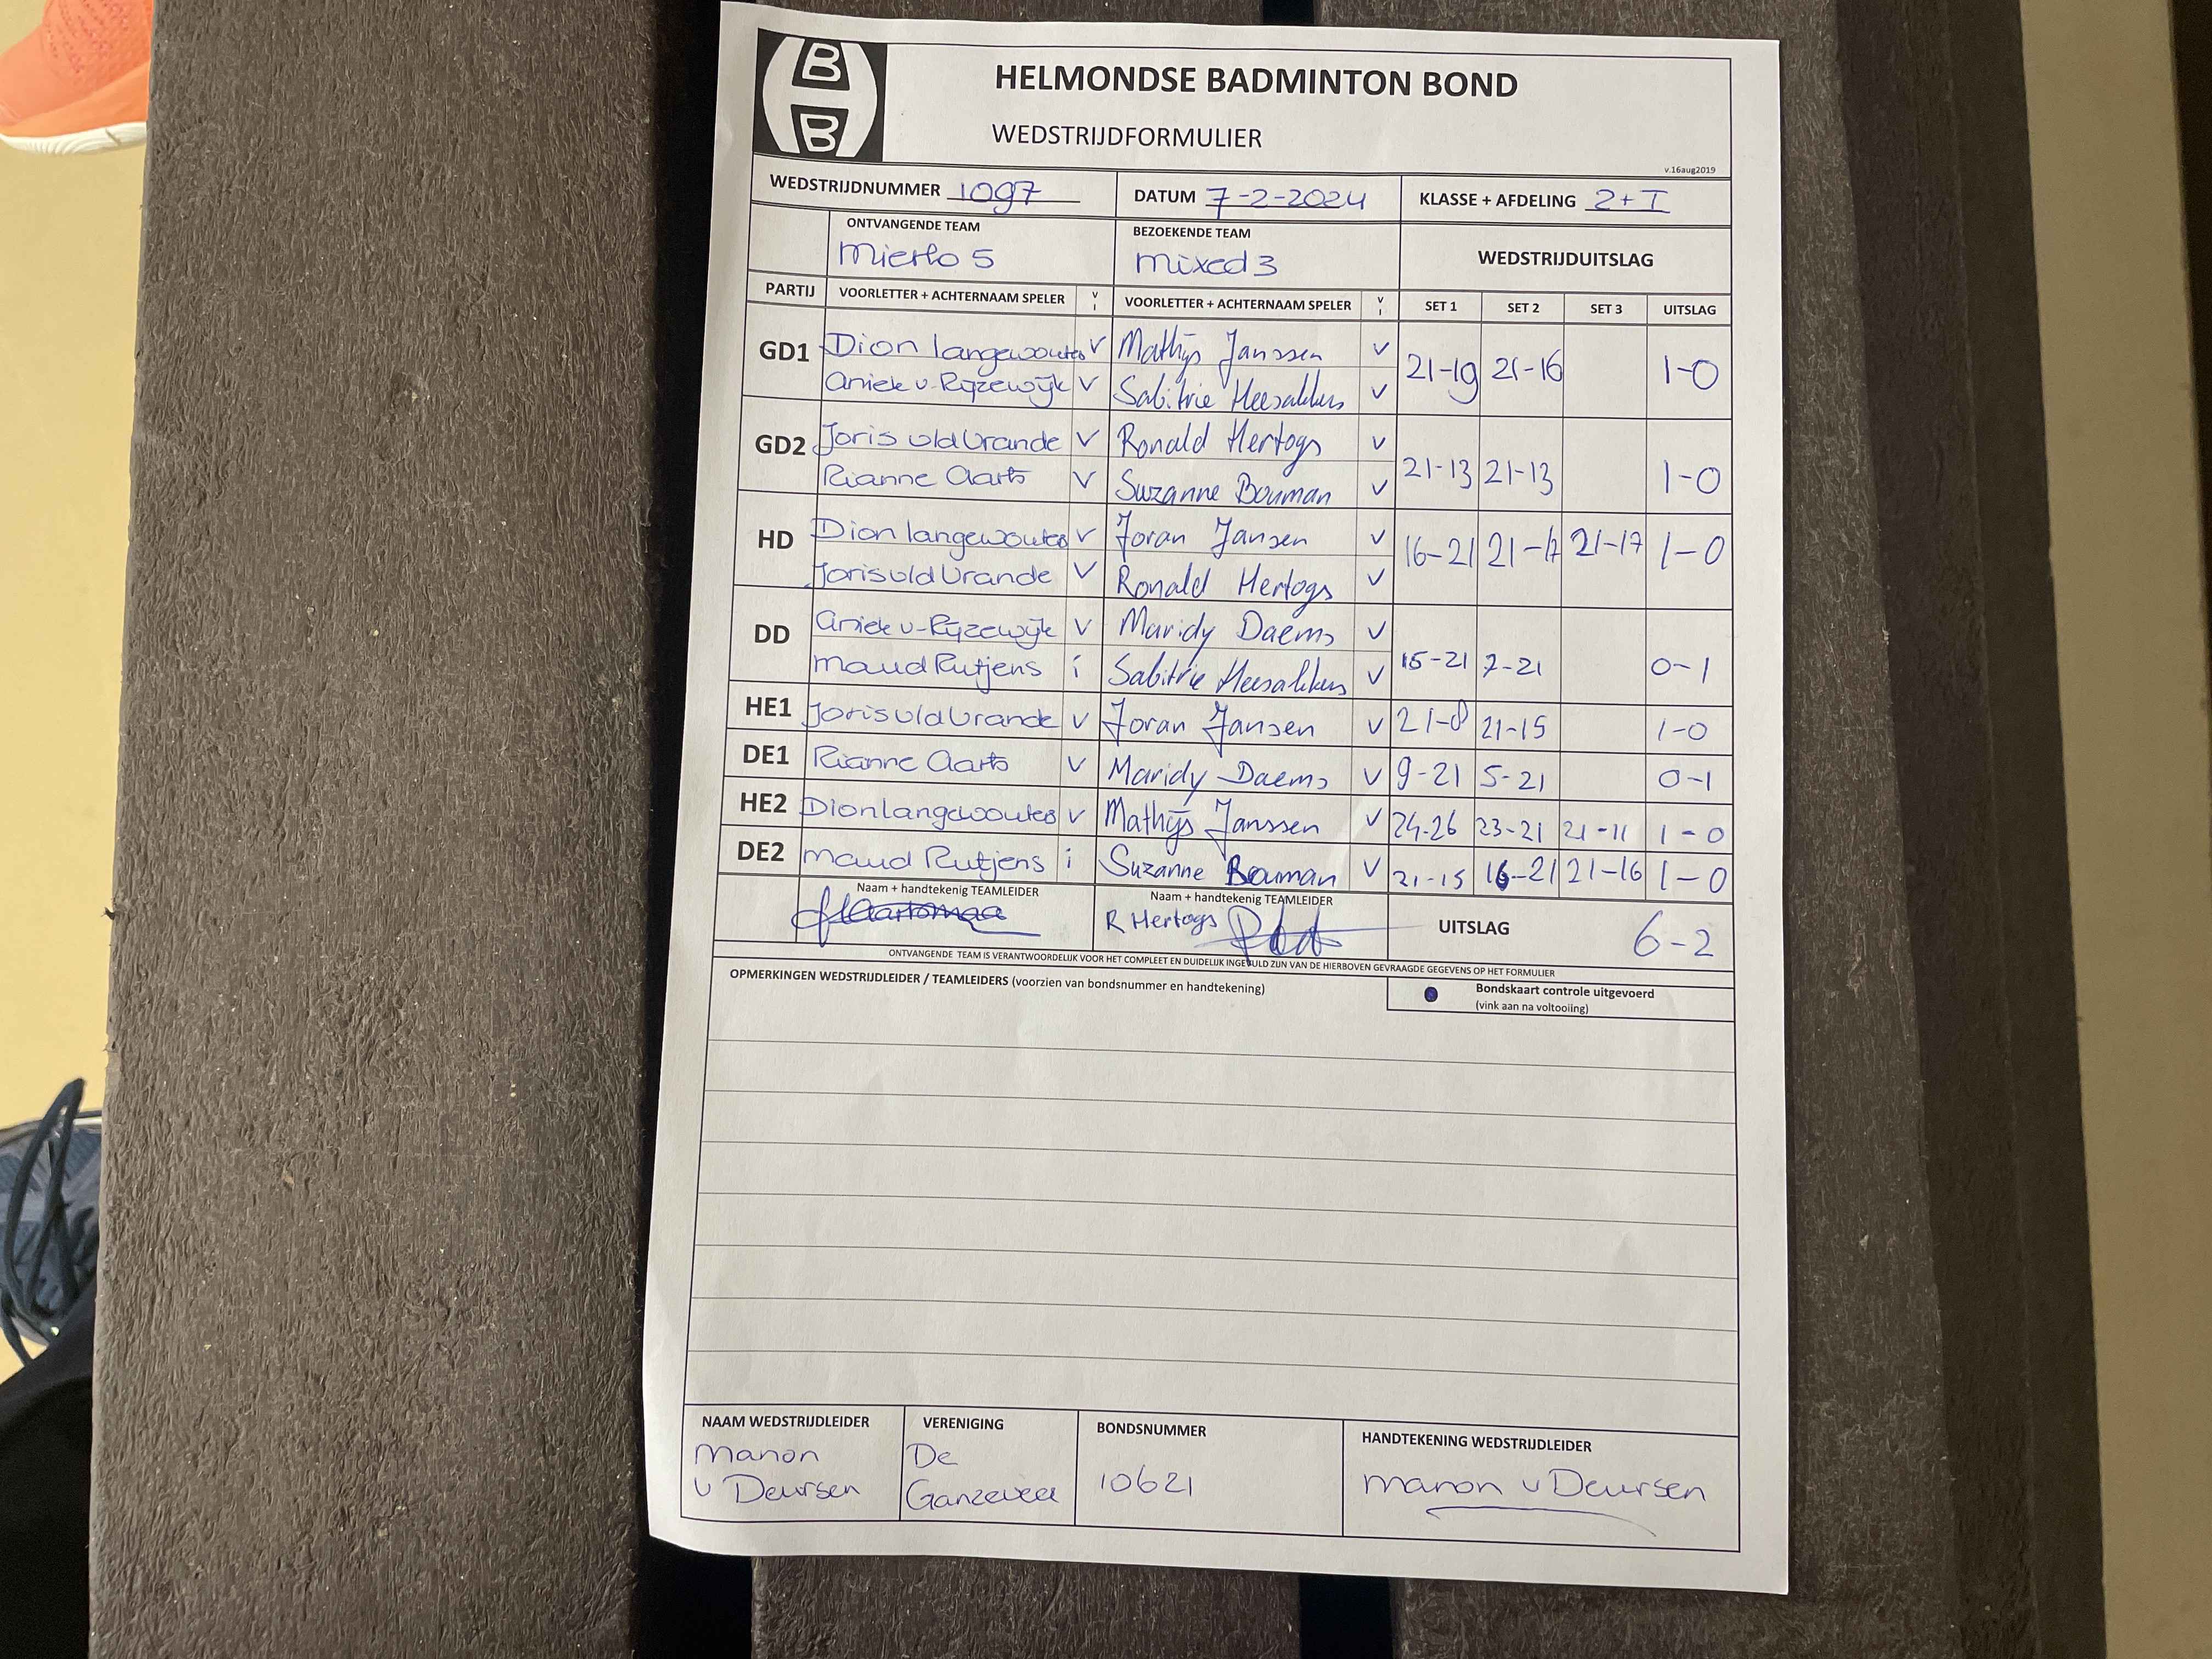 B
B
HELMONDSE BADMINTON BOND
WEDSTRIJDFORMULIER
v.16aug2019
WEDSTRIJDNUMMER 1097 DATUM 7-2-2024 KLASSE + AFDELING 2+I
ONTVANGENDE TEAM BEZOEKENDE TEAM WEDSTRIJDUITSLAG
Mierlo 5 mixed 3
PARTIJ VOORLETTER + ACHTERNAAM SPELER V I VOORLETTER + ACHTERNAAM SPELER V I SET 1 SET 2 SET 3 UITSLAG
GD1 Dion langewouters V Mathijs Janssen V 21-19 21-16 1-0
Aniek v. Rijzewijk V Sabitrie Heesakkers V
GD2 Joris vld Vrande V Ronald Hertogs V 21-13 21-13 1-0
Rianne Aarts V Suzanne Bouman V
HD Dion langewouters V Joran Jansen V 16-21 21-17 21-17 1-0
Joris vld Vrande V Ronald Hertogs V
DD Aniek v-Rijzewijk V Maridy Daems V 15-21 7-21 0-1
Maud Rutjens i Sabitrie Heesakkers V
HE1 Joris vld Vrande V Joran Jansen V 21-8 21-15 1-0
DE1 Rianne Aarts V Maridy Daems V 9-21 5-21 0-1
HE2 Dion langewouters V Mathijs Janssen V 24-26 23-21 21-11 1-0
DE2 Maud Rutjens i Suzanne Bouman V 21-15 16-21 21-16 1-0
Naam + handtekenig TEAMLEIDER Naam + handtekenig TEAMLEIDER
R Hertogs UITSLAG 6-2
ONTVANGENDE TEAM IS VERANTWOORDELIJK VOOR HET COMPLEET EN DUIDELIJK INGEVULD ZIJN VAN DE HIERBOVEN GEVRAAGDE GEGEVENS OP HET FORMULIER
OPMERKINGEN WEDSTRIJDLEIDER / TEAMLEIDERS (voorzien van bondsnummer en handtekening) Bondskaart controle uitgevoerd
(vink aan na voltooiing)
NAAM WEDSTRIJDLEIDER VERENIGING BONDSNUMMER HANDTEKENING WEDSTRIJDLEIDER
Manon De 10621 manon v Deursen
v Deursen Ganzeveer